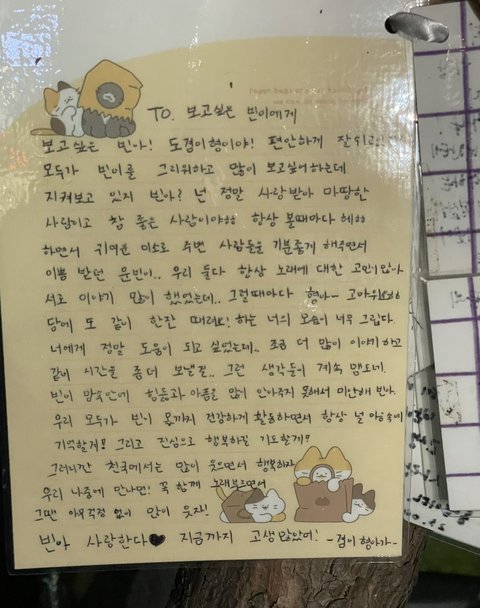 TO. 보고싶은 빈이에게
보고싶은 빈아! 도겸이형이야! 편안하게 잘 쉬고
모두가 빈이를 그리워하고 많이 보고싶어하는데
지켜보고 있지 빈아? 넌 정말 사랑받아 마땅한
사람이고 참 좋은 사람이야ㅎㅎ 항상 볼때마다 헤ㅎㅎ
하면서 귀여운 미소로 주변 사람들을 기분좋게 해주면서
이쁨 받던 문빈이.. 우리 둘다 항상 노래에 대한 고민이 많아
서로 이야기 많이 했었는데.. 그럴때마다 형아~ 고마워ㅎㅎ
담에 또 같이 한잔 때려요! 하는 너의 모습이 너무 그립다.
너에게 정말 도움이 되고 싶었는데.. 조금 더 많이 이야기 하고
같이 시간을 좀 더 보낼걸.. 그런 생각들이 계속 맴도네.
빈이 맘속안에 힘듦과 아픔을 많이 안아주지 못해서 미안해 빈아.
우리 모두가 빈이 몫까지 건강하게 활동하면서 항상 널 마음속에
기억할게! 그리고 진심으로 행복하길 기도할게?
그러니깐 천국에서는 많이 웃으면서 행복하자
우리 나중에 만나면! 꼭 함께 노래부르면서
그땐 아무걱정 없이 많이 웃자!
빈아 사랑한다♥ 지금까지 고생많았어! -겸이 형아가-